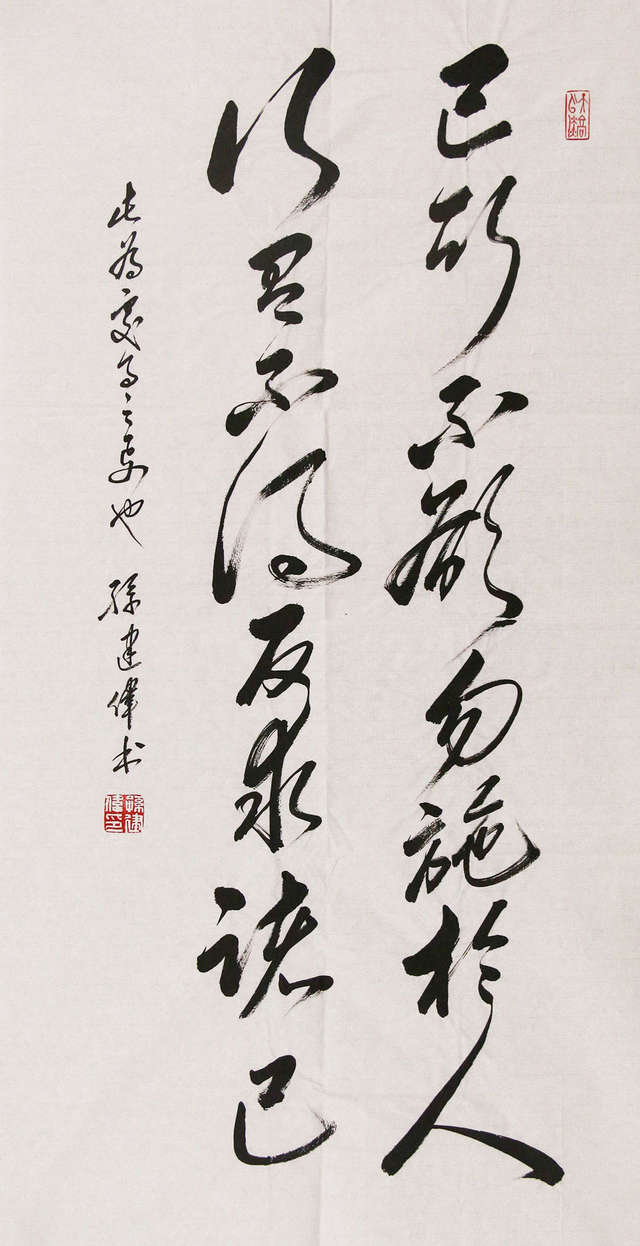 己所不欲勿施於人
行有不得反求諸己
此為之也 孫建偉书
孫建偉印